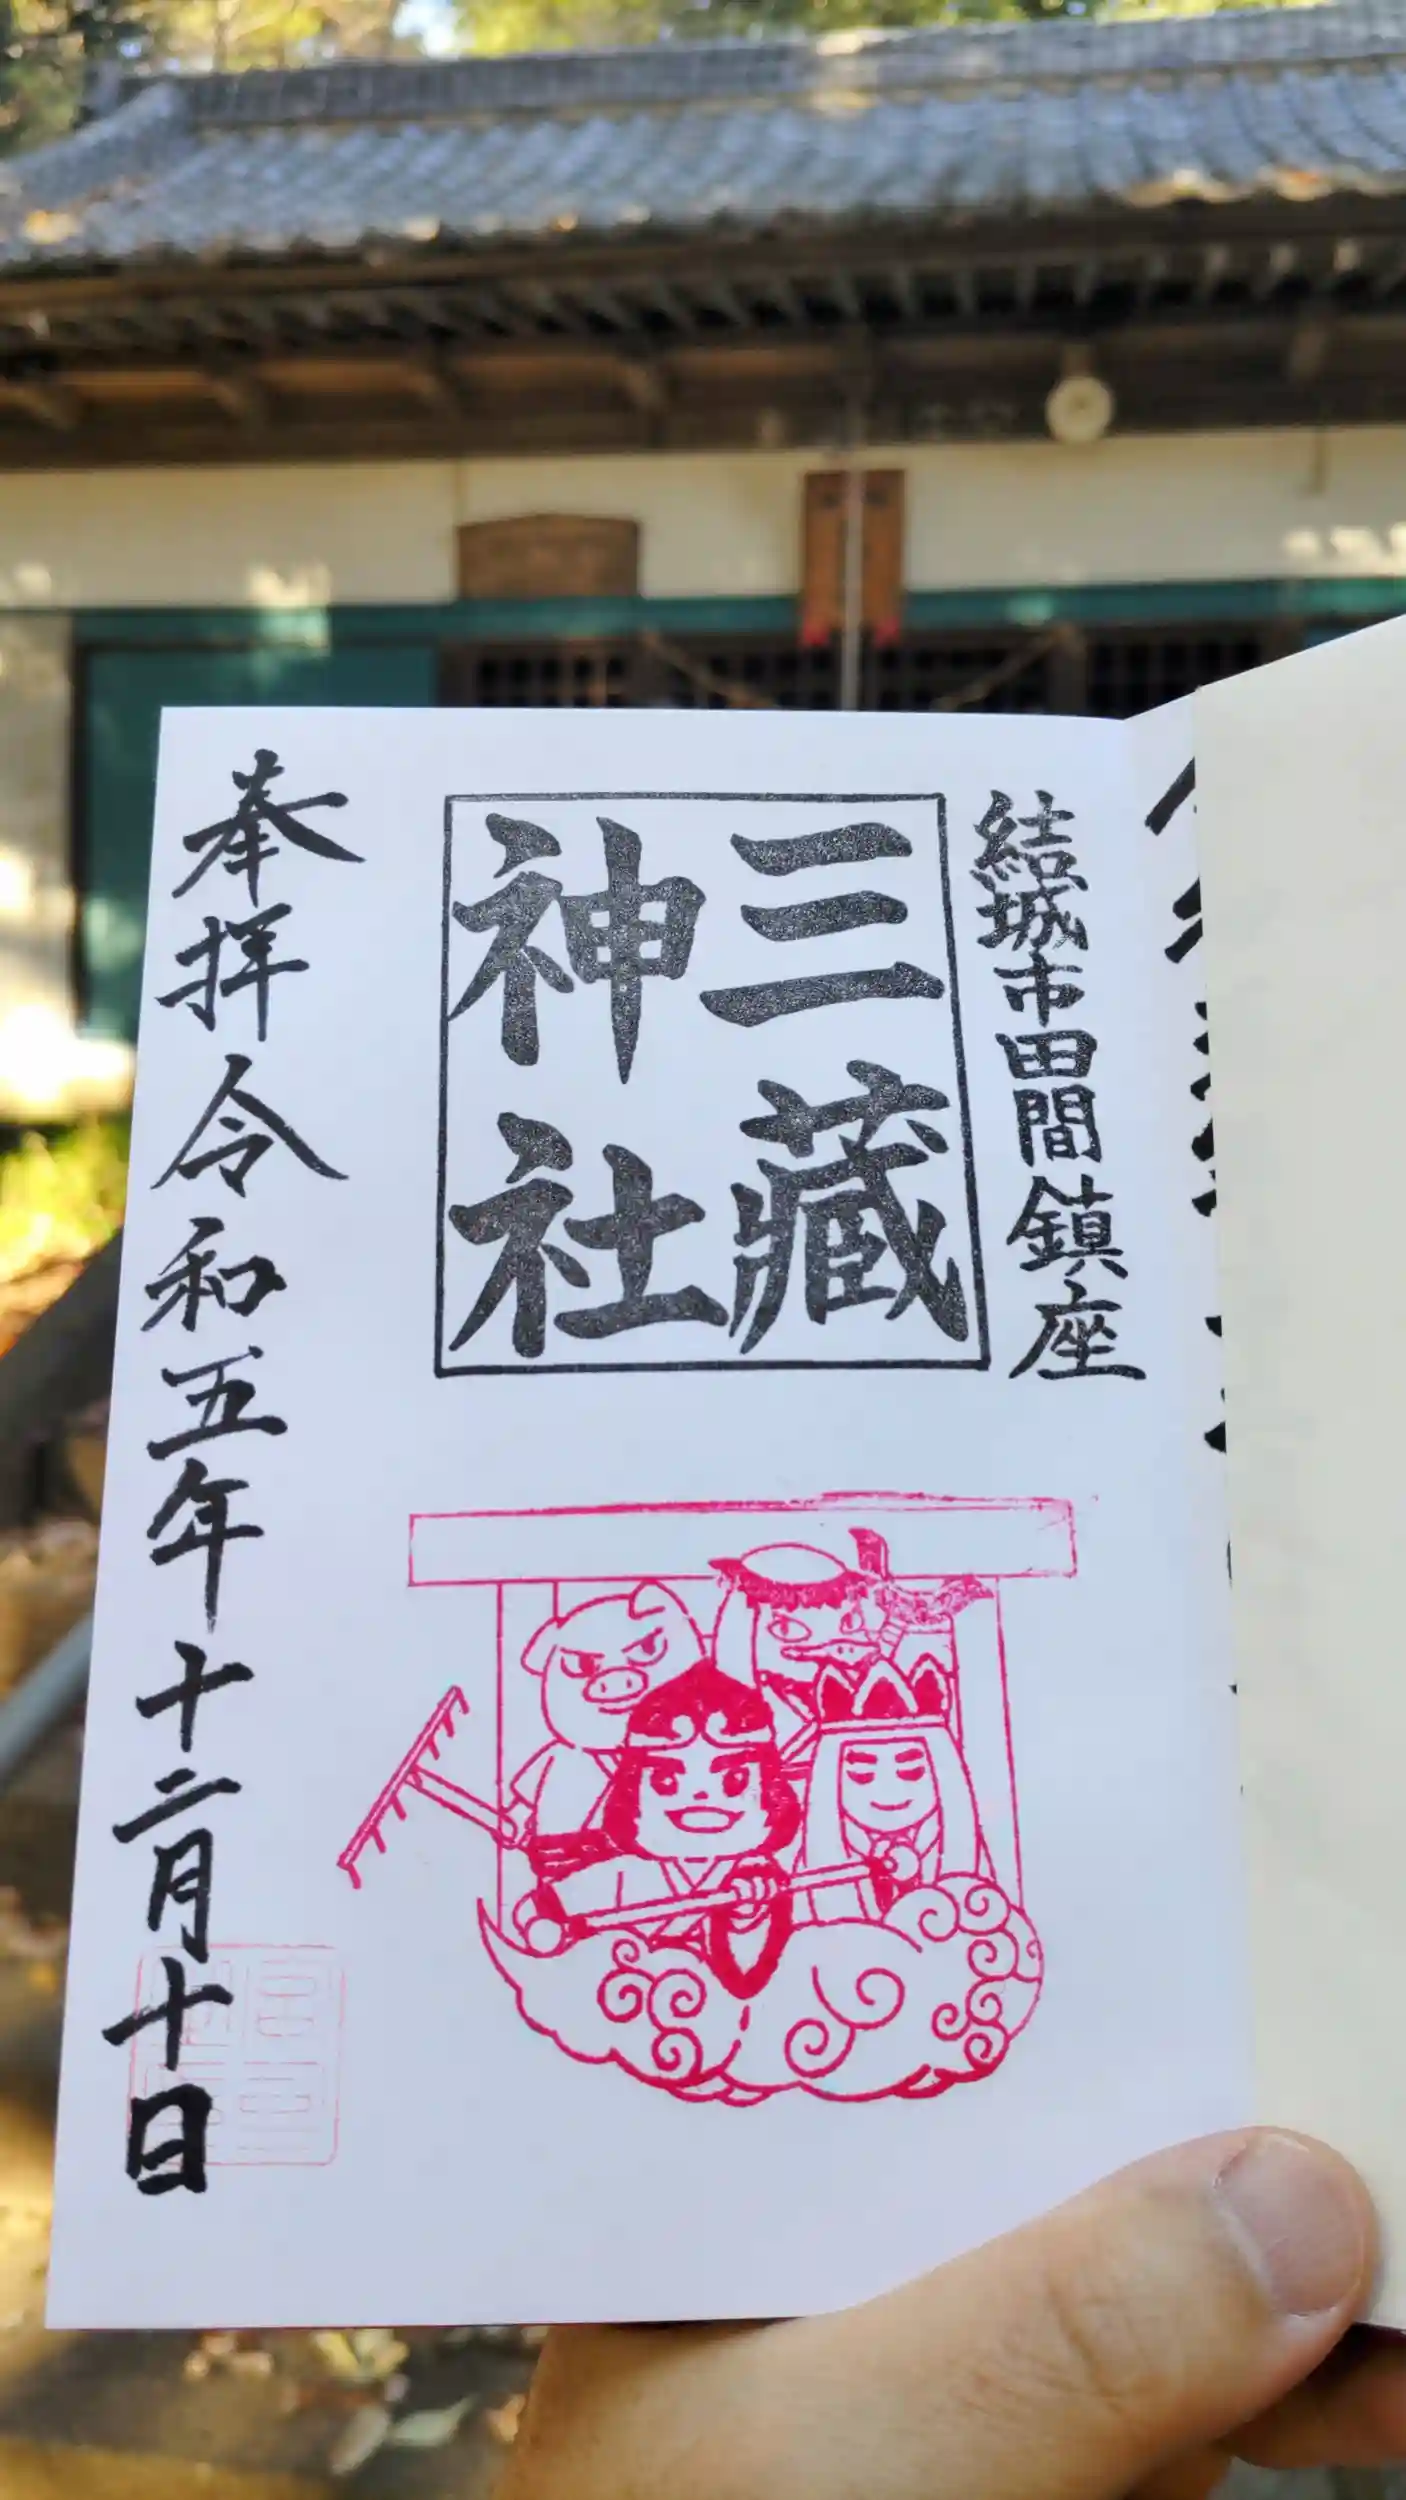 結城市田間鎮座
三藏
神社
奉拝令和五年十二月十日